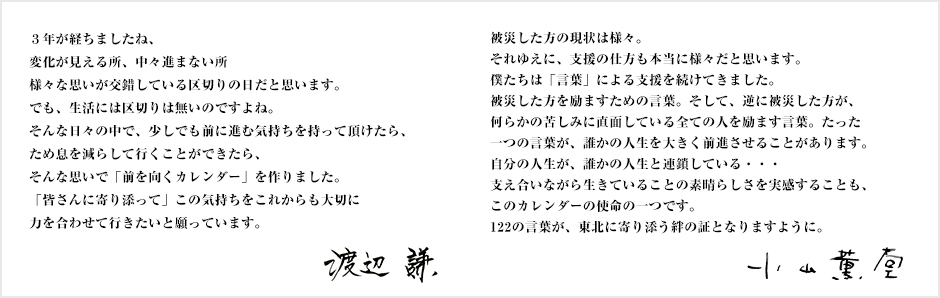 ３年が経ちましたね、
変化が見える所、中々進まない所
様々な思いが交錯している区切りの日だと思います。
でも、生活には区切りは無いのですよね。
そんな日々の中で、少しでも前に進む気持ちを持って頂けたら、
ため息を減らして行くことができたら、
そんな思いで「前を向くカレンダー」を作りました。
「皆さんに寄り添って」この気持ちをこれからも大切に
力を合わせて行きたいと願っています。
渡辺 謙
被災した方の現状は様々。
それゆえに、支援の仕方も本当に様々だと思います。
僕たちは「言葉」による支援を続けてきました。
被災した方を励ますための言葉。そして、逆に被災した方が、
何らかの苦しみに直面している全ての人を励ます言葉。たった
一つの言葉が、誰かの人生を大きく前進させることがあります。
自分の人生が、誰かの人生と連鎖している・・・
支え合いながら生きていることの素晴らしさを実感することも、
このカレンダーの使命の一つです。
122の言葉が、東北に寄り添う絆の証となりますように。
小山薫堂